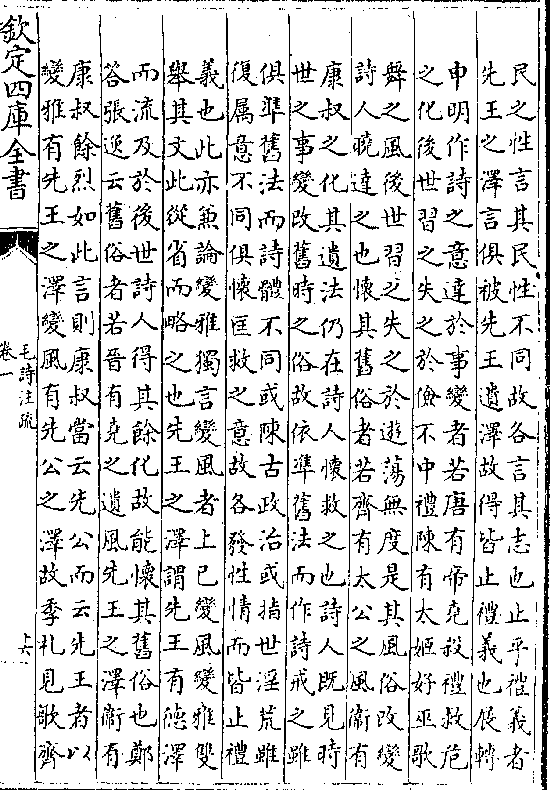 民之性言其民性不同故各言其志也止乎禮義者
先王之澤言俱被先王遺澤故得皆止禮義也展轉
申明作詩之意達於事變者若唐有帝堯殺禮救危
之化後世習之失之於儉不中禮陳有太姬好巫歌
舞之風後世習之失之於遊蕩無度是其風俗改變
詩人曉達之也懷其舊俗者若齊有太公之風衛有
康叔之化其遺法仍在詩人懷救之也詩人既見時
世之事變改舊時之俗故依準舊法而作詩戒之雖
俱準舊法而詩體不同或陳古政治或指世淫荒雖
復属意不同俱懷匡救之意故各發性情而皆止禮
義也此亦兼論變雅獨言變風者上已變風變雅雙
舉其文此從省而略之也先王之澤謂先王有徳澤
而流及於後世詩人得其餘化故能懷其舊俗也鄭
荅張逸云舊俗者若晉有堯之遺風先王之澤衛有
康叔餘烈如此言則康叔當云先公而云先王者以
變雅有先王之澤變風有先公之澤故季札見歌齊
欽定四庫全書
毛詩注疏
卷一